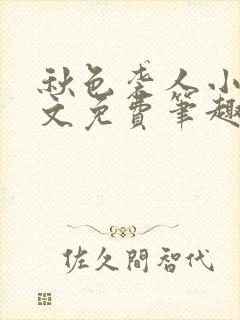 秋色季人小
文免費筆趣
佐久間智代